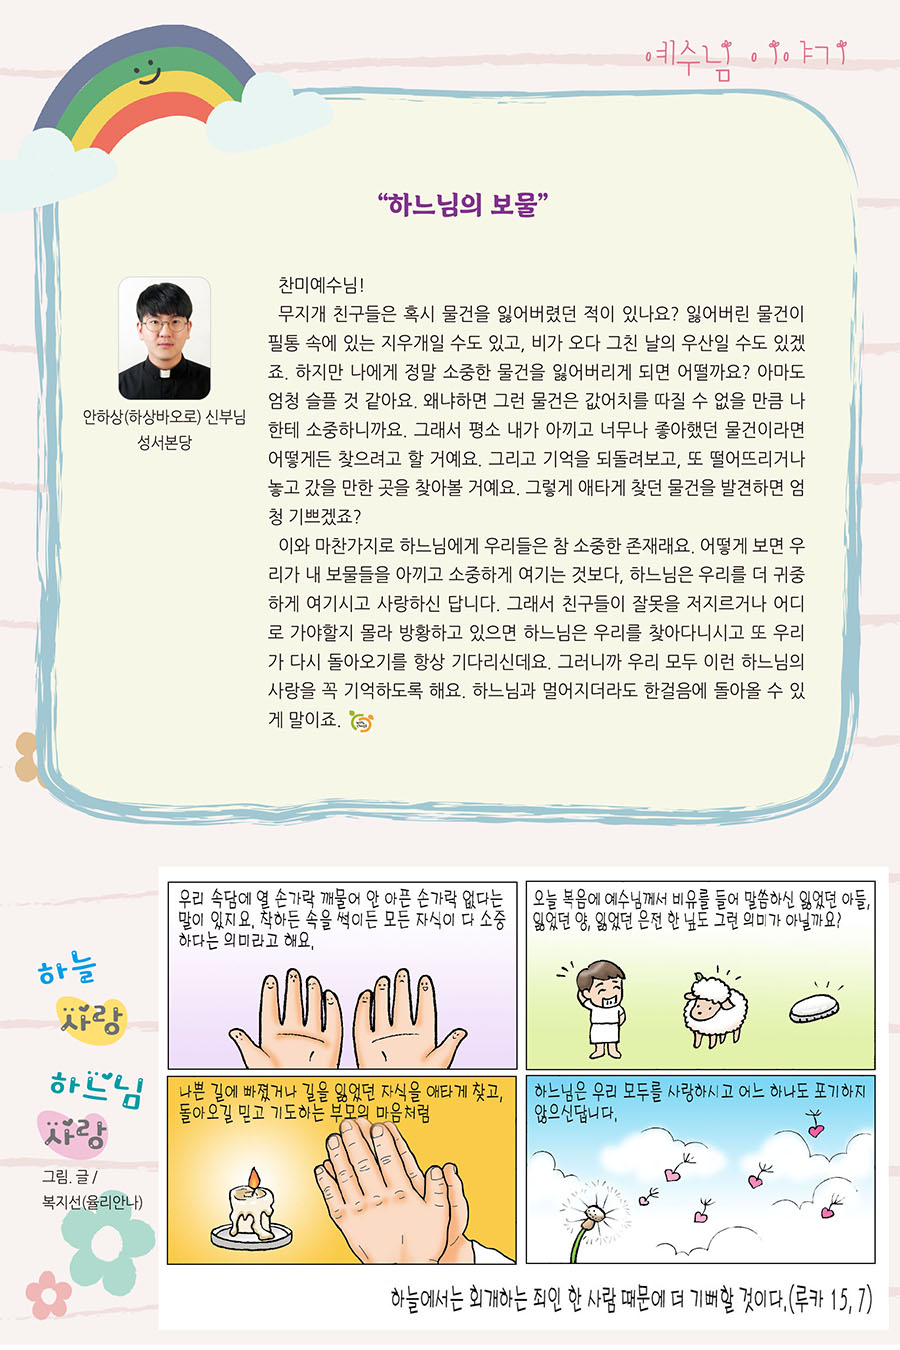 예수님 이야기
“하느님의 보물”
찬미예수님!
무지개 친구들은 혹시 물건을 잃어버렸던 적이 있나요? 잃어버린 물건이
필통 속에 있는 지우개일 수도 있고, 비가 오다 그친 날의 우산일 수도 있겠
죠. 하지만 나에게 정말 소중한 물건을 잃어버리게 되면 어떨까요? 아마도
엄청 슬플 것 같아요. 왜냐하면 그런 물건은 값어치를 따질 수 없을 만큼 나
한테 소중하니까요. 그래서 평소 내가 아끼고 너무나 좋아했던 물건이라면
어떻게든 찾으려고 할 거예요. 그리고 기억을 되돌려보고, 또 떨어뜨리거나
놓고 갔을 만한 곳을 찾아볼 거예요. 그렇게 애타게 찾던 물건을 발견하면 엄
청 기쁘겠죠?
이와 마찬가지로 하느님에게 우리들은 참 소중한 존재래요. 어떻게 보면 우
리가 내 보물들을 아끼고 소중하게 여기는 것보다, 하느님은 우리를 더 귀중
하게 여기시고 사랑하신 답니다. 그래서 친구들이 잘못을 저지르거나 어디
로 가야할지 몰라 방황하고 있으면 하느님은 우리를 찾아다니시고 또 우리
가 다시 돌아오기를 항상 기다리신데요. 그러니까 우리 모두 이런 하느님의
사랑을 꼭 기억하도록 해요. 하느님과 멀어지더라도 한걸음에 돌아올 수 있
게 말이죠.
안하상(하상바오로) 신부님
성서본당
하늘
사랑
하느님
사랑
그림. 글 /
복지선(율리안나)
우리 속담에 열 손가락 깨물어 안 아픈 손가락 없다는
말이 있지요. 착하든 속을 썩이든 모든 자식이 다 소중
하다는 의미라고 해요.
오늘 복음에 예수님께서 비유를 들어 말씀하신 잃었던 아들,
잃었던 양, 잃었던 은전 한 닢도 그런 의미가 아닐까요?
나쁜 길에 빠졌거나 길을 잃었던 자식을 애타게 찾고,
돌아오길 믿고 기도하는 부모의 마음처럼
하느님은 우리 모두를 사랑하시고 어느 하나도 포기하지
않으신답니다.
하늘에서는 회개하는 죄인 한 사람 때문에 더 기뻐할 것이다.(루카 15, 7)